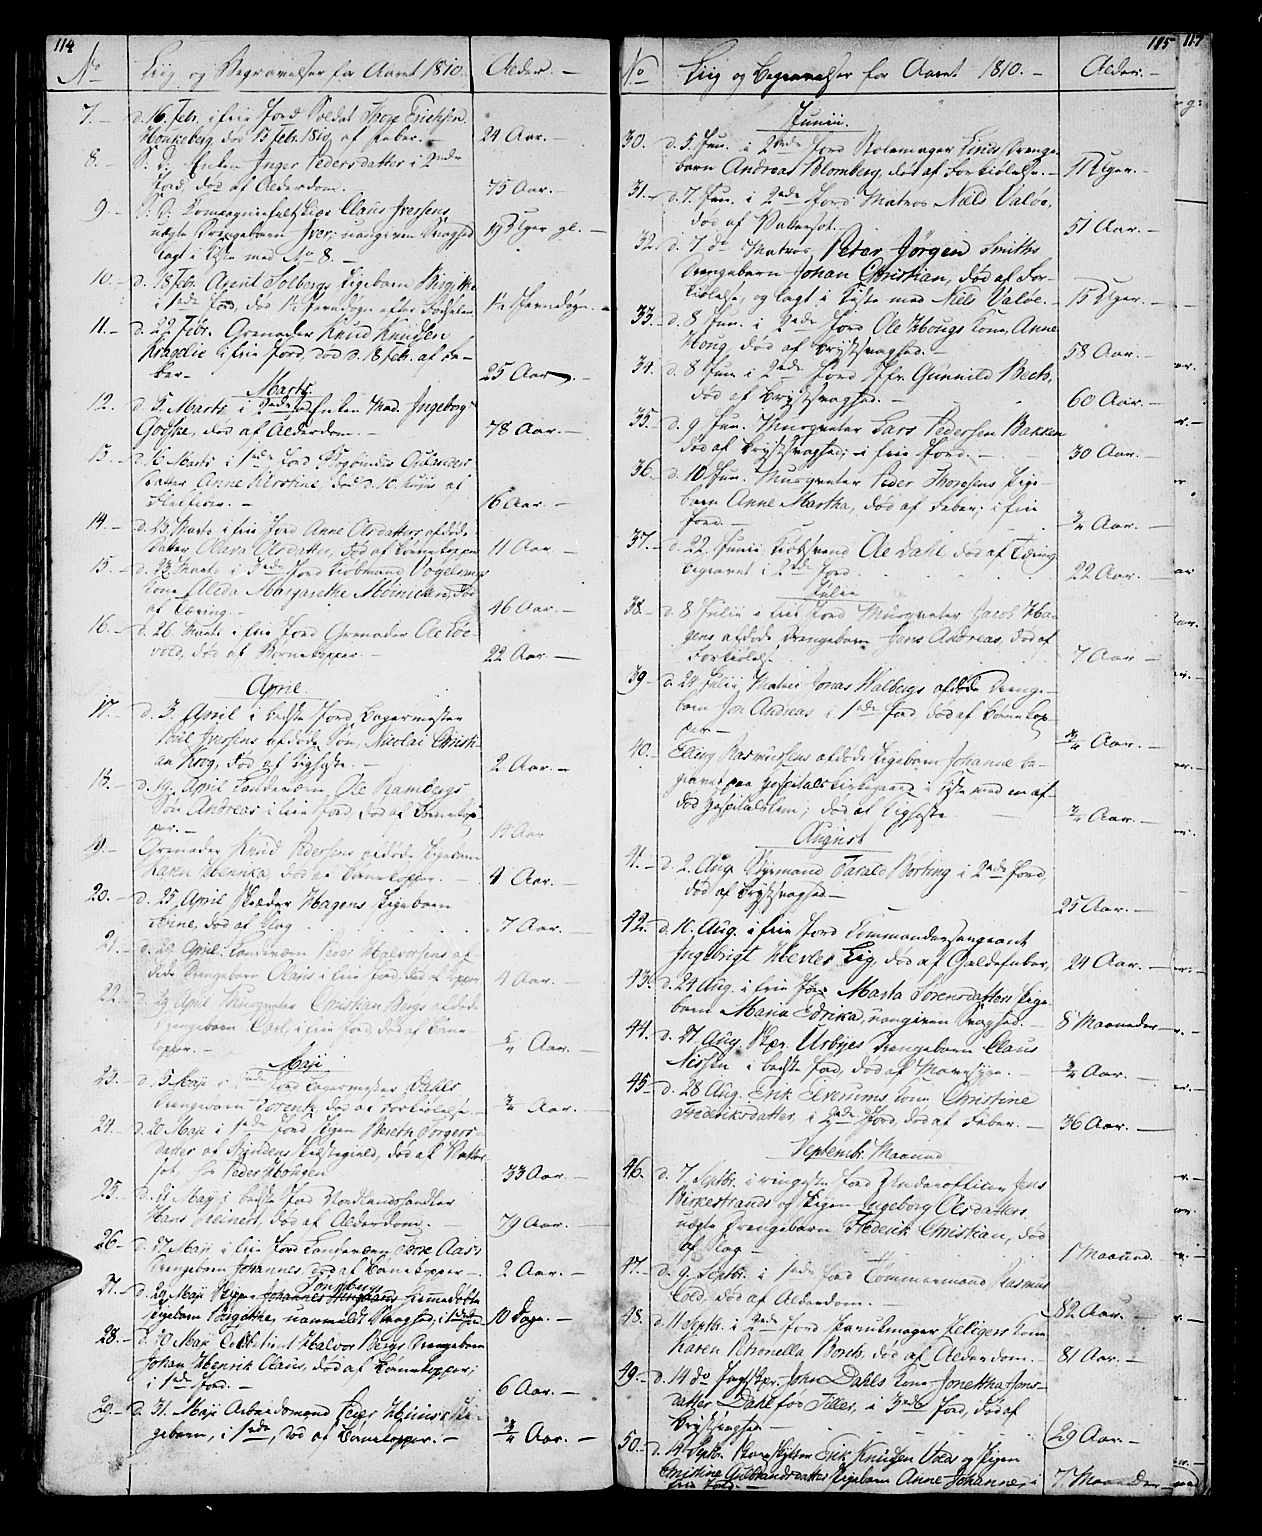 114
No Liig og Begravelser for Aaret 1810. Alder. -
7. - d. 16. Febr. i frie Jord, Soldat Thore Erichsen
Honkeberg, død 13 Febr. 1810, af Feber. - 24 Aar. -
8. - S: D: Enken Inger Pedersdatter i 2den
Jord, død af Alderdom. - 75 Aar. -
9 - S: D: Compagniefeltskiær Claus Iversens
uægte Drengebarn Iver; unangiven Svaghed
lagt i Kiste med No 8. - 19 Uger gl. -
10. - d. 18 Febr. Arnt Solbergs Pigebarn Birgitha
i 1ste Jord, død 1½ Stunddøgn efter Fødselen
11. - d. 22. Febr. Grenadeer Knud Knudsen
Kragelie i frie Jord, død d. 18 Febr. af Fe-
ber. - 25 Aar. -
Marts.
12. d. 5. Marts i 2den Jord Enken Mad. Ingeborg
død af Alderdom. - 78 Aar. -
13. - d. Marts i 1ste Jord Bogbinder
datter Anne Kirstine, død af
16 Aar. -
14. - d. 23. Marts i frie Jord Anne Olsdatters afdøde
datter Olava Olsdatter, død af Børnekopper 11 Aar. -
15. - d. 23. Marts i 3die Jord Kiøbmand Vogelsangs
Kone Aleda Margarethe Møinichen, død
af Tæring. - 46 Aar. -
16. - d. 26. Marts i frie Jord Grenadeer Ole Løe-
vold, død af Børnekopper. - 22 Aar. -
April.
17. - d. 3. April i bedste Jord, Bagermester
Poul Iversens afdøde Søn, Nicolai Christi-
an Krog, død af Kighoste. - 2 Aar. -
18. - d. 19. April Landeværn Ole Rambergs
Søn Andreas i frie Jord, død af Børnekop-
per. - 14 Aar
19. - Grenadeer Knud Pedersens afdøde Pigebarn
Karen Hennica, død af Børnekopper. - 4 Aar. -
20. - d. 25 April Skræder Hagens Pigebarn
død af Slag 7 Aar. -
21. - d. 28 April Landeværn Peder Halvorsens af-
døde Drengebarn i frie Jord, død af Kopper 4 Aar. -
22. - d. 29 April Musqueter Christian Bugs afdøde
Drengebarn Carl i frie Jord død af Børne-
kopper. - ¾ Aar. -
Maji
23. - d. 5 Maji i 1ste Jord Bagermester Dahls
Drengebarn Lorentz, død af Forkiølelse. - ¾ Aar. -
24. d. 20 Maji i 1ste Jord Pigen Bereth Torgers-
datter af død af Vatter-
sot, Peder Schougen 33 Aar. -
25. - d. 21 Maji i bedste Jord Nordlandshandler
Hans Meinert, død af Alderdom. - 79 Aar. -
26. - d. 27 Maji i frie Jord Landeværn Tore Aaes
Drengebarn Johannes, død af Børnekopper - 2 Aar. -
27. - d. 29 Maji Skipper Johannes Tønsberg hiemmedøbte
Pigebarn Birgitha, unanmeldt Svaghed, i 1ste Jord 10 Dage. -
28. - d. 30 Maji Halvor Bergs Drengebarn
Johan Henrik Claus, død af Børnekopper;
i 1ste Jord. - 6 Aar. -
29. - d. 31. Maji Arbeidsmand Peder Pi-
gebarn, i 1ste, død af Børnekopper. - ¾ Aar. -
115
117
No Liig og Begravelser for Aaret 1810. - Alder. -
Junii.
30. - d. 5 Jun. i 2den Jord Stolemager Linds Drenge-
barn Andreas Blomberg, død af Forkiølelse. - 11 Uger. -
31. - d. 7. Jun. i 2den Jord Matros Niels Valøe,
død af Vattersot. - 51 Aar. -
32. - d. 7 do Matros, Peter Jørgen Smiths
Drengebarn Johan Christian, død af For-
kiølelse, og lagt i Kiste med Niels Valøe. - 15 Uger. -
33. - d. 8 Jun. i 2den Jord Ole Hougs Kone, Anne
Houg, død af Brystsvaghed. - 58 Aar. -
34. d. 8 Jun i 2den Jord Jfr. Gunnild Bech,
død af Brystsvaghed. - 60 Aar. -
35. - d. 9 Jun. Musqueter Lars Pedersen Bakken
død af Brystsvaghed; i frie Jord. - 30 Aar. -
36. d. 10. Jun. Musqueter Peder Thoresens Pige-
barn Anne Martha, død af Feber; i frie
Jord. - ¾ Aar. -
37. - d. 22. Junii Ole Dahl død af Tæring
begravet i 2den Jord 22 Aar. -
Julii
38. - d. 8 Julii i frie Jord Musqueter Jacob Ha-
gens afdøde Drengebarn Jens Andreas, død af
Forkiølelse 7 Aar. -
39. - d. 24 Julii, Matros Jonas Walbergs afdøde Drenge-
barn Jon Andreas i 1ste Jord, død af Børnekop-
per - ¾ Aar. -
40. - Elling Rasmussens afdøde Pigebarn Johanne be-
gravet paa Hospitals Kirkegaard i Kiste med en af-
død Hospitalslem; død af Kighoste. ¾ Aar. -
August
41. - d. 2. Aug. Styrmand Tarald Borting i 2den Jord,
død af Brystsvaghed - 25 Aar. -
42. - d. 16. Aug. i frie Jord Commandersergeant
Ingebrigt Herlev Lie, død af Galdefeber, 24 Aar. -
43. - d. 24 Aug. i frie Jord Marta Sørensdatters Pige-
barn Maria Edrika, unangiven Svaghed. - 8 Maaneder -
44. - d. 27 Aug. Skpr. Urbyes Drengebarn Claus
Nissen i bedste Jord, død af Mavesyge. - ¾ Aar. -
45 - d. 28 Aug. Erik Elverums Kone Christine
Frederiksdatter, i 2den Jord, død af Feber. - 36 Aar. -
Septembr. Maaned
46. - d. 7. Septbr. i ringeste Jord Underofficer Jens
Birkestrands og Pigen Ingeborg Olsdatters
uægte Drengebarn Frederik Christian, død
af Slag - 1 Maaned.
47. - d. 9. Septbr. i 1ste Jord Tømmermand Rasmus
død af Alderdom. - 82 Aar. -
48. - d. 11 Septbr. i 2den Jord Parukmager Seligers Kone
Karen Petronella Borch, død af Alderdom. - 81 Aar. -
49. - d. 14 do Jagtskpr. John Dahls Kone Jonetha Jons-
datter Dahl før Tiller, i 3die Jord, død af
Brystsvaghed - 29 Aar. -
50. - d. 14 Septbr. Erik Knudsen Vold og Pigen
Christine Gulbrandsdatters Pigebarn Anne Johanne, i
frie Jord. - 7 Maaneder -